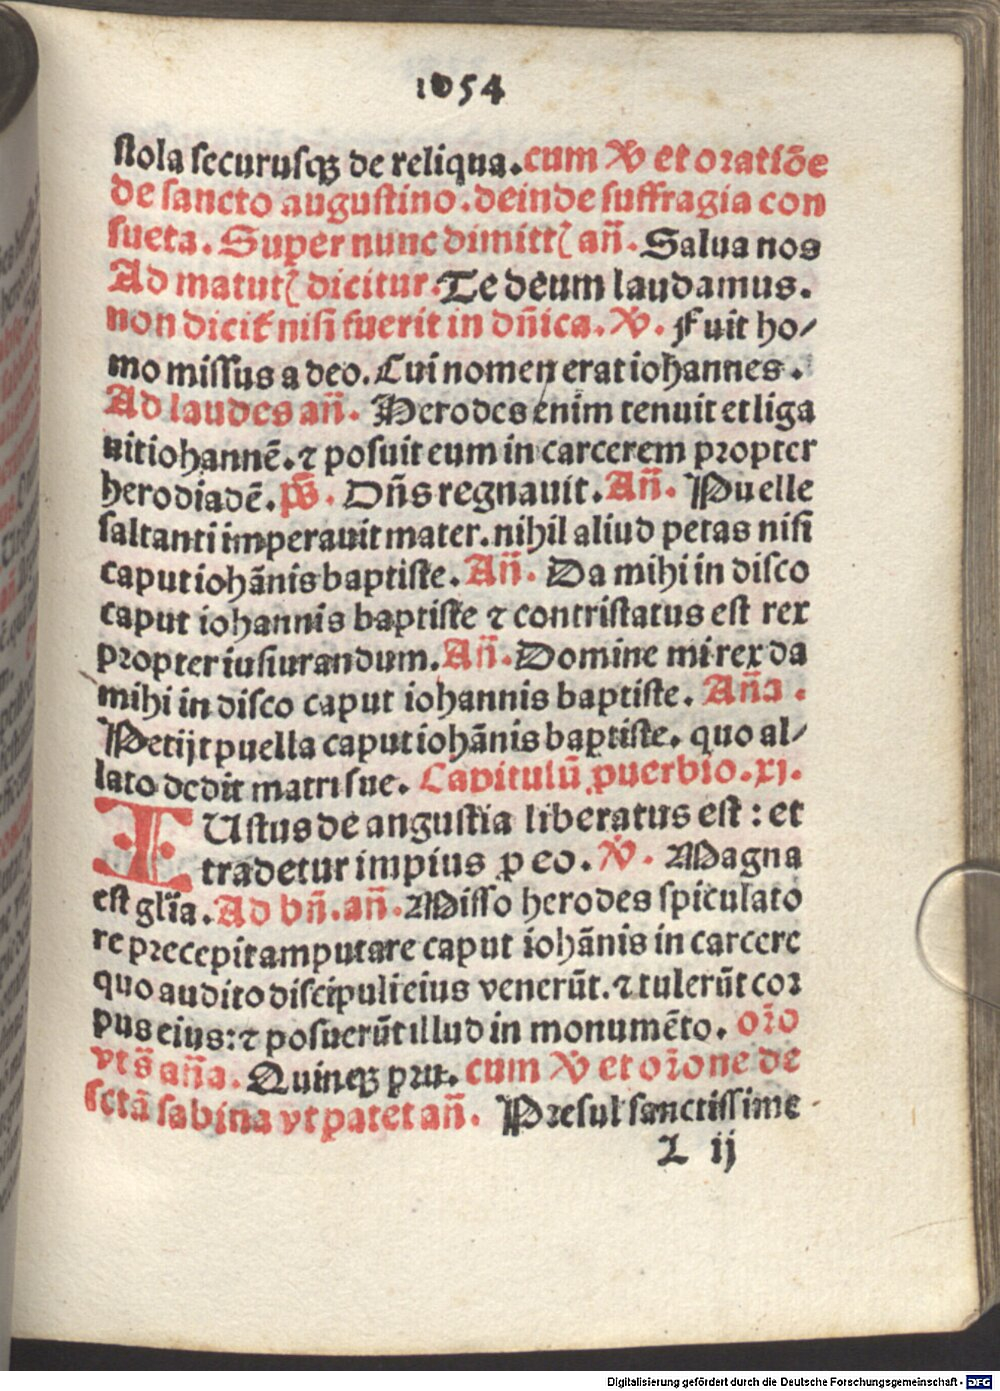 1054
stola securusqꝫ de reliqua. cum ℣ et oratiōe
de sancto augustino. deinde suffragia con
sueta. Super nunc dimittꝭ añ. Salua nos
Ad matutꝭ dicitur. Te deum laudamus.
non dicit̃ nisi fuerit in dñica. ℣. Fuit ho⸗
mo missus a deo. Cui nomen erat iohannes.
Ad laudes añ. Herodes enim tenuit et liga
uit iohannē. ⁊ posuit eum in carcerem propter
herodiadē. p̄s. Dñs regnauit. Añ. Puelle
saltanti imperauit mater. nihil aliud petas nisi
caput iohānis baptiste. Añ. Da mihi in disco
caput iohannis baptiste ⁊ contristatus est rex
propter iusiurandum. Añ. Domine mi rex da
mihi in disco caput iohannis baptiste. Aña.
Petijt puella caput iohānis baptiste. quo al⸗
lato dedit matri sue. Capitulū ꝓuerbio. xi.
IUstus de angustia liberatus est: et
tradetur impius ꝓ eo. ℣. Magna
est gl̃ia. Ad bñ. añ. Misso herodes spiculato
re precepit amputare caput iohānis in carcere
quo audito discipuli eius venerūt. ⁊ tulerūt cor
pus eius: ⁊ posuerūt illud in monumēto. or̃o
vts̃ aña. Quinqꝫ pru. cum ℣ et or̃one de
sctā sabina vt patet añ. Presul sanctissime
L ij
Digitalisierung gefördert durch die Deutsche Forschungsgemeinschaft - DFG